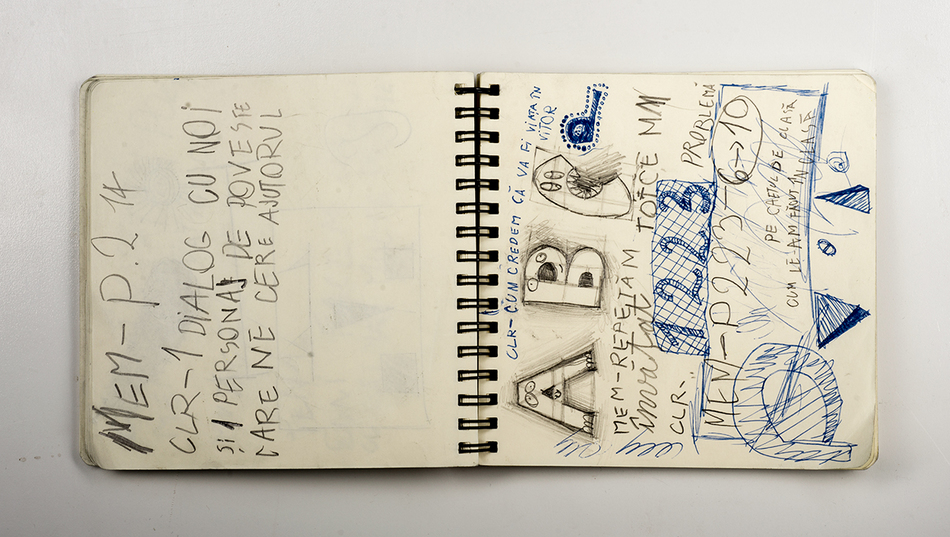 MEM – P. 2 14
CLR – 1 DIALOG CU NOI
ȘI 1 PERSONAJ DE POVESTE
CARE NE CERE AJUTORUL
CLR – CUM CREDEM CĂ VA FI VIAȚA ÎN
VIITOR
A B C d
MEM – REPETĂM TOT CE
învățat
CLR –
1223 PROBLEMĂ
MEM – P 223 6→10
PE CAETUL DE CLASĂ
CUM LE-AM FĂCUT ÎN CLASĂ